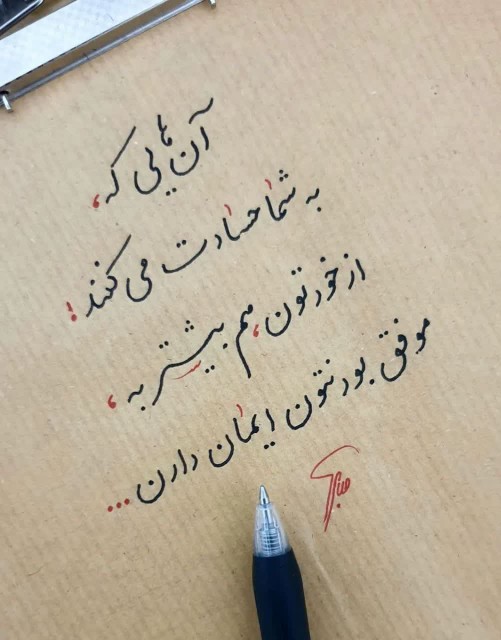 آن هایی که،
به شما حسادت می کنند!
از خودتون، هم بیشتر به،
موفق بودنتون ایمان دارن...